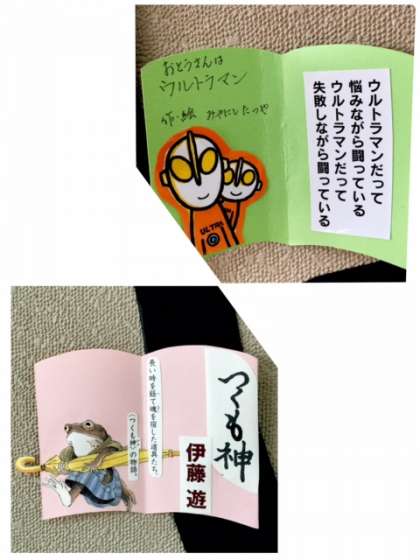 おとうさんは
ウルトラマン
作・絵 みやにしたつや
ULTRA
ウルトラマンだって
悩みながら闘っている
ウルトラマンだって
失敗しながら闘っている
つくも神
伊藤 遊
長い時を経て魂を宿した道具たち。
「つくも神」の物語。